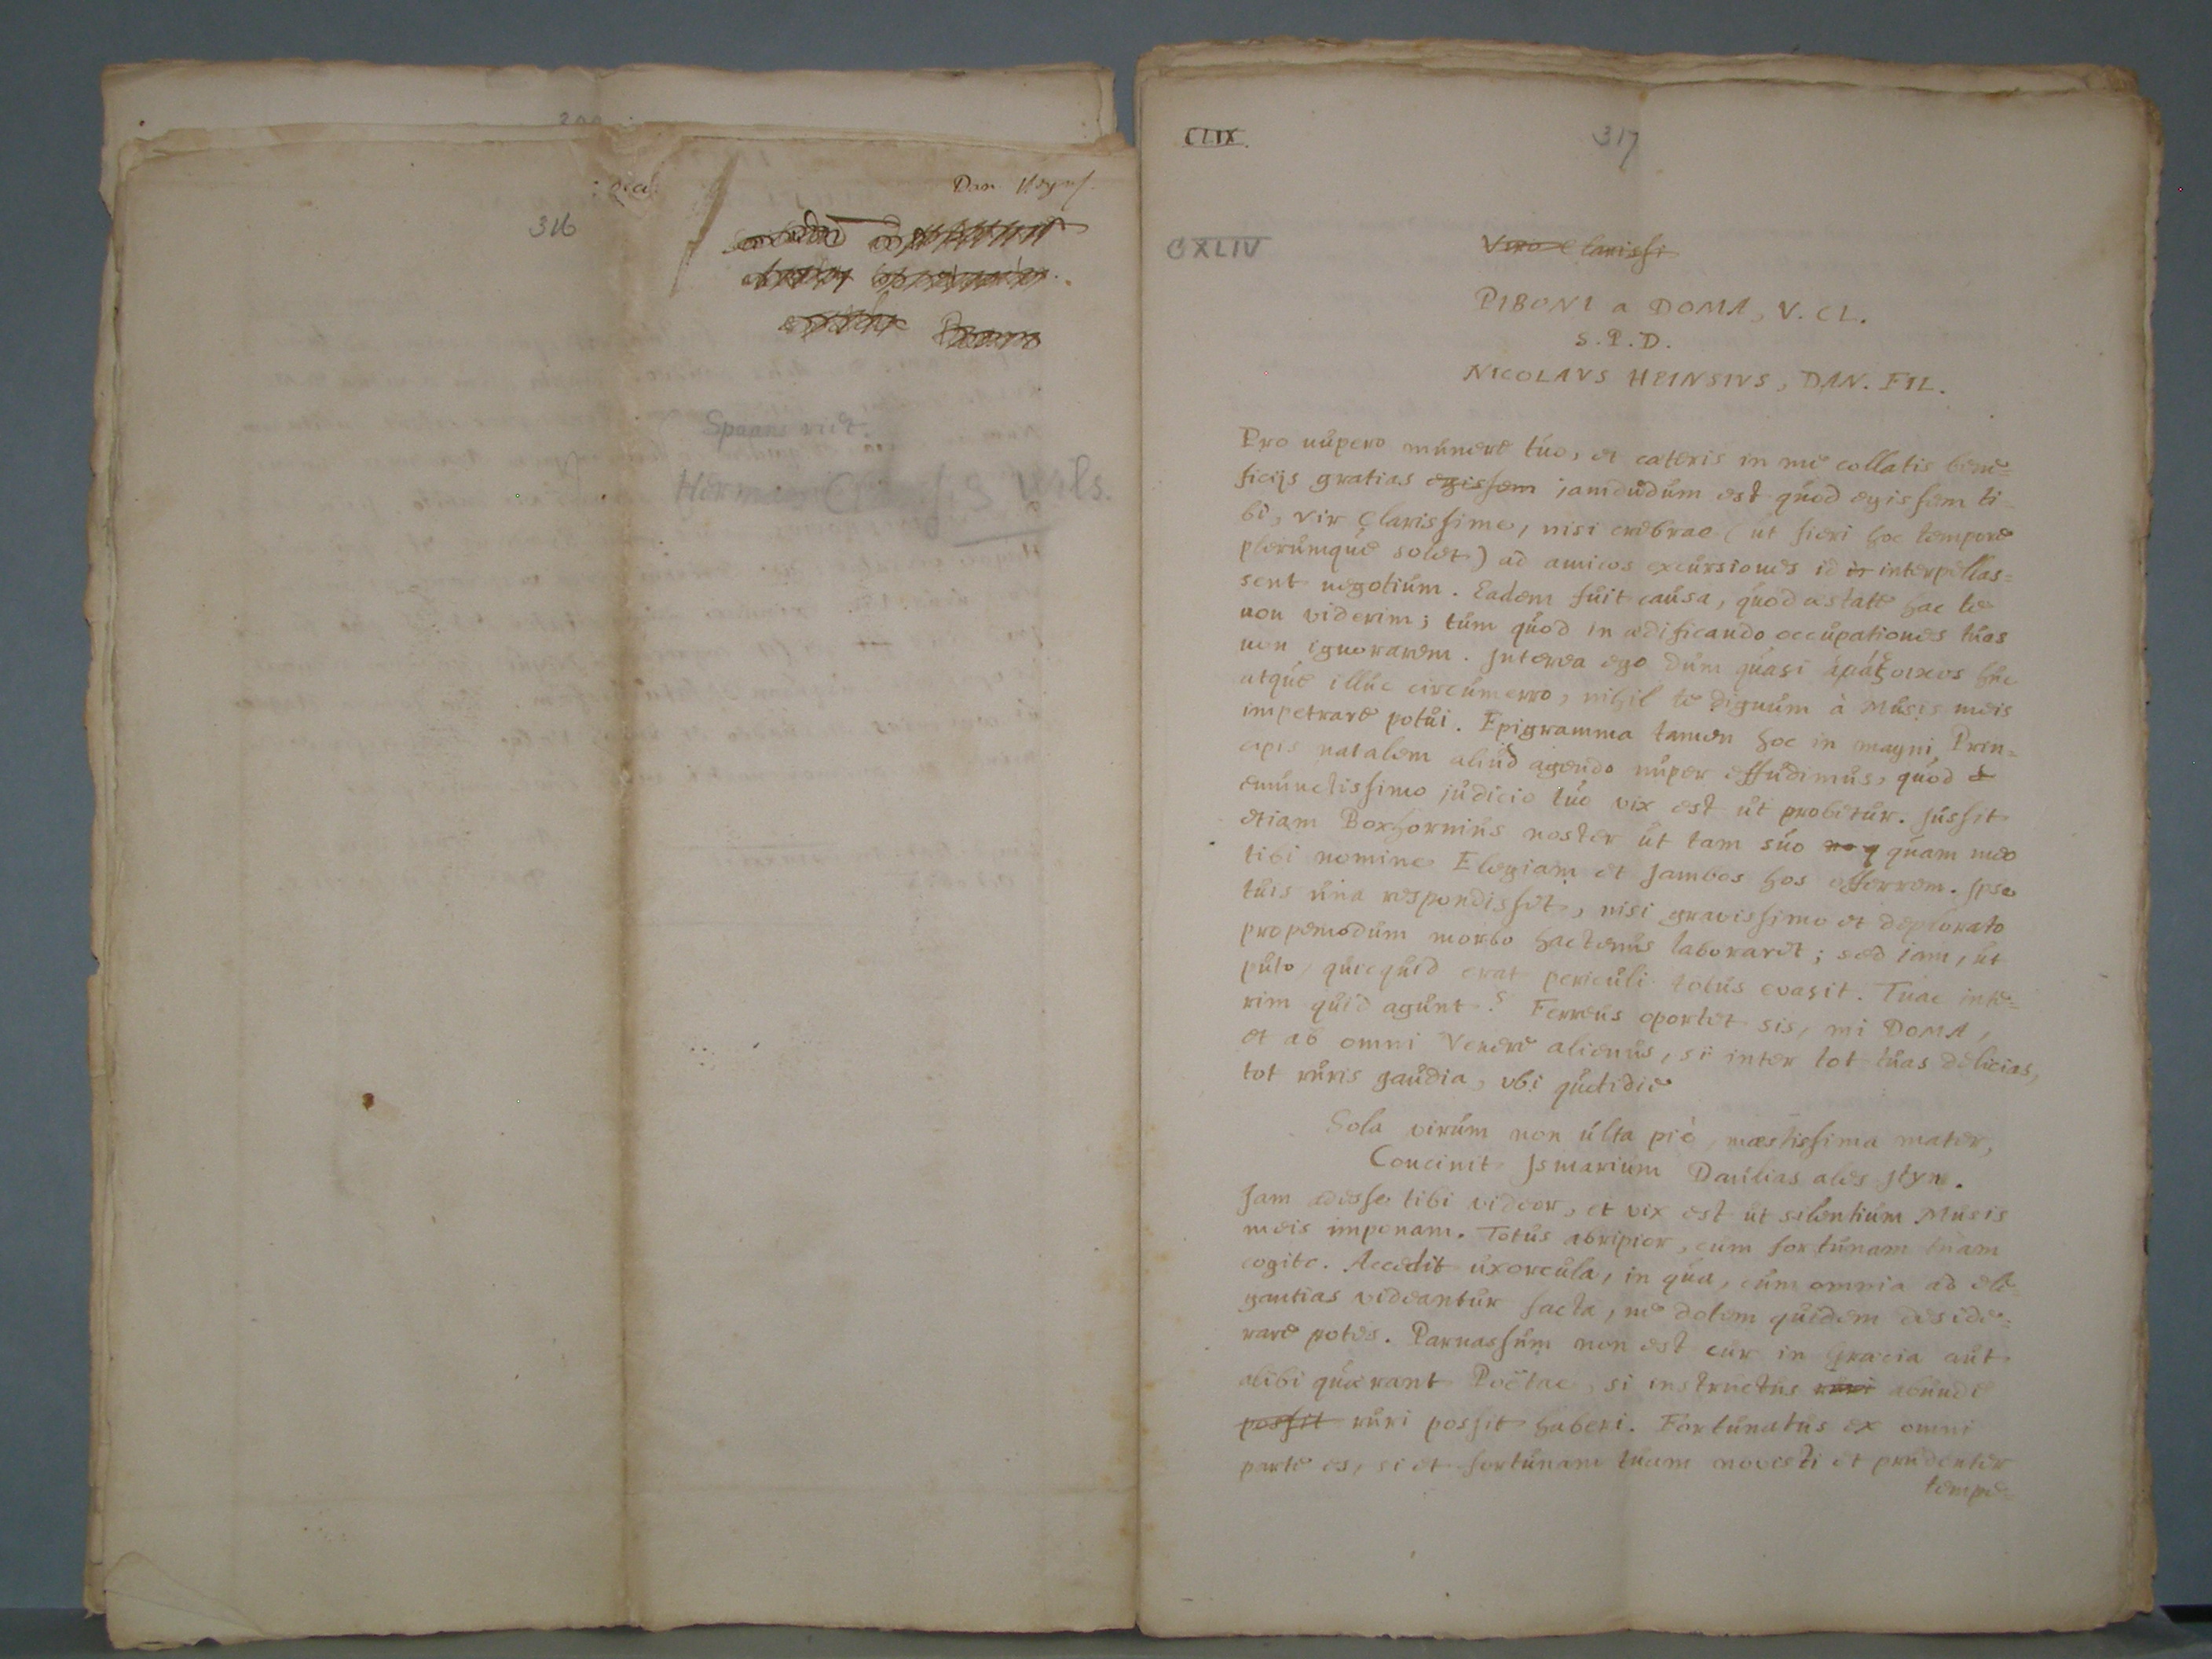 300
Dan. Heyns.
316
Spaans riet
Herman S Wils.
CLIX.
317
CXLIV
Viro Clarissi
PIBONI a DOMA, V. CL.
S. P. D.
NICOLAVS HEINSIVS, DAN. FIL.
Pro nupero munere tuo, et cæteris in me collatis bene=
ficijs gratias egissem jamdudum est quod egissem ti
bi, vir Clarissime, nisi crebrae (ut fieri hoc tempore
plerumque solet) ad amicos excursiones id in interpellas=
sent negotium. Eadem fuit causa, quod æstate hac te
non viderim; tum quod in ædificando occupationes tuas
non ignorarem. Interea ego dum quasi ἁμάξοικος huc
atque illuc circumerro, nihil te dignum à Musis meis
impetrare potui. Epigramma tamen hoc in magni Prin=
cipis natalem aliud agendo nuper effudimus, quod
emunctissimo judicio tuo vix est ut probetur. Jussit
etiam Boxhornius noster ut tam suo quam meo
tibi nomine Elegiam et Jambos hos offerrem. Ipse
tuis una respondisset, nisi gravissimo et deplorato
propemodum morbo hactenus laborarit; sed iam, ut
puto, quicquid erat periculi totus evasit. Tuae inte=
rim quid agunt? Ferreus oportet sis, mi DOMA,
et ab omni Venere alienus, si inter tot tuas delicias,
tot ruris gaudia, ubi quotidie
Sola virum non ulta piè mæstissima mater,
Concinit Ismarium Daulias ales Ityn.
Jam adesse tibi videor, et vix est ut silentium Musis
meis imponam. Totus abripior, cum fortunam tuam
cogito. Accedit uxorcula, in qua, cum omnia ad ele
gantias videantur facta, ne dotem quidem deside=
rare potes. Parnassum non est cur in Græcia aut
alibi quærant Poëtae, si instructus ruri abunde
possit ruri possit haberi. Fortunatus ex omni
parte es, si et fortunam tuam novisti et prudenter
tempe=